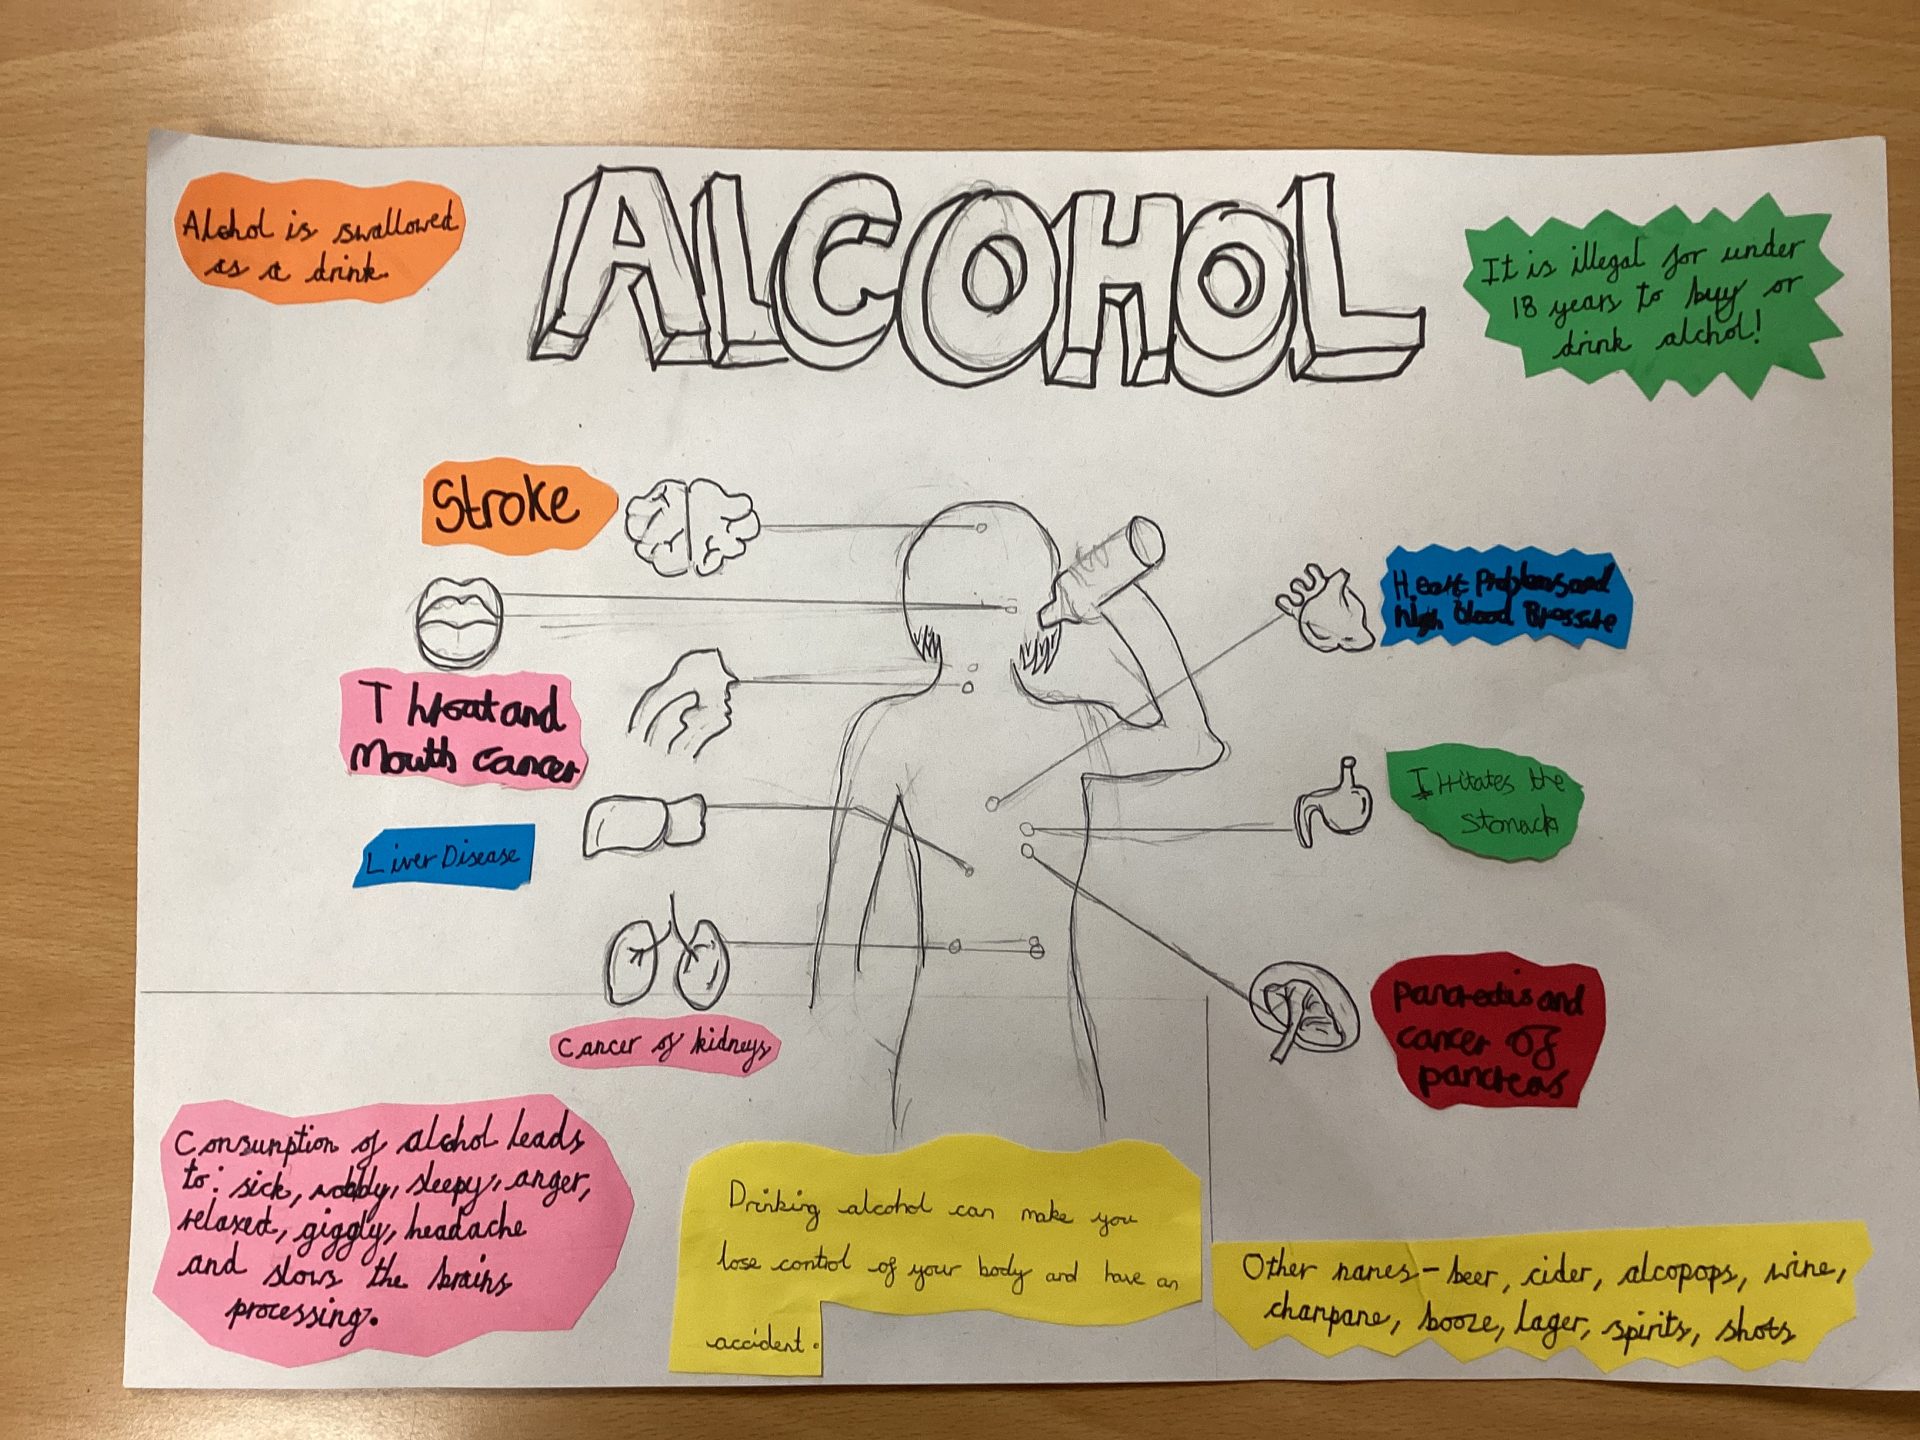 ALCOHOL
Alchol is swallowed
as a drink.
It is illegal for under
18 years to buy or
drink alchol!
Stroke
Heart Problems and
high blood Pressure
Throat and
Mouth cancer
Irritates the
stomach
Liver Disease
Pancreatis and
cancer of
pancreas
Cancer of kidneys
Consumption of alcohol leads
to: sick, wobbly, sleepy, anger,
relaxed, giggly, headache
and slows the brains
processing.
Drinking alcohol can make you
lose control of your body and have an
accident.
Other names - beer, cider, alcopops, wine,
champane, booze, lager, spirits, shots